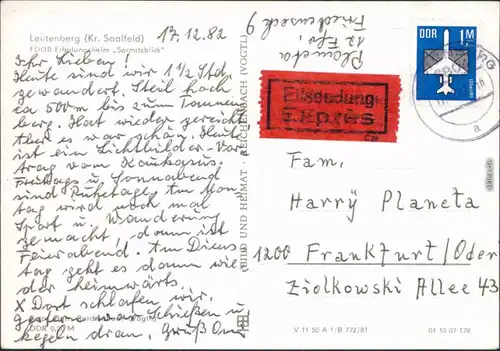 Leutenberg (Kr. Saalfeld)
FDGB Erholungsheim „Sormitzblick"
17.12.82
Ihr Lieben!
Heute sind wir 1½ Std
gewandert. Steil hoch
ca 500m bis zum Tannen
berg. Hat wieder gereicht
Aber es war schön. Heute
ist ein Lichtbilder-Vor
trag vom Kaukasus.
Freitags u Sonnabend
sind Ruhetage. Am Mon
tag wird noch mal
Sport u Wanderung
gemacht, dann ist
Feierabend. Am Diens
tag geht es dann wie
der heimwärts.
X Dort schlafen wir,
gestern war Schießen u
kegeln dran. Gruß Oma
DDR 0,20 M
BILD UND HEIMAT REICHENBACH (VOGTL)
Planeta
12 Ffo.
9
DDR 1M
Eilsendung
Exprès
Fam.
Harry Planeta
1200 Frankfurt/Oder
Ziolkowski Allee 43
V 11 50 A 1/B 772/81
01 10 07 178